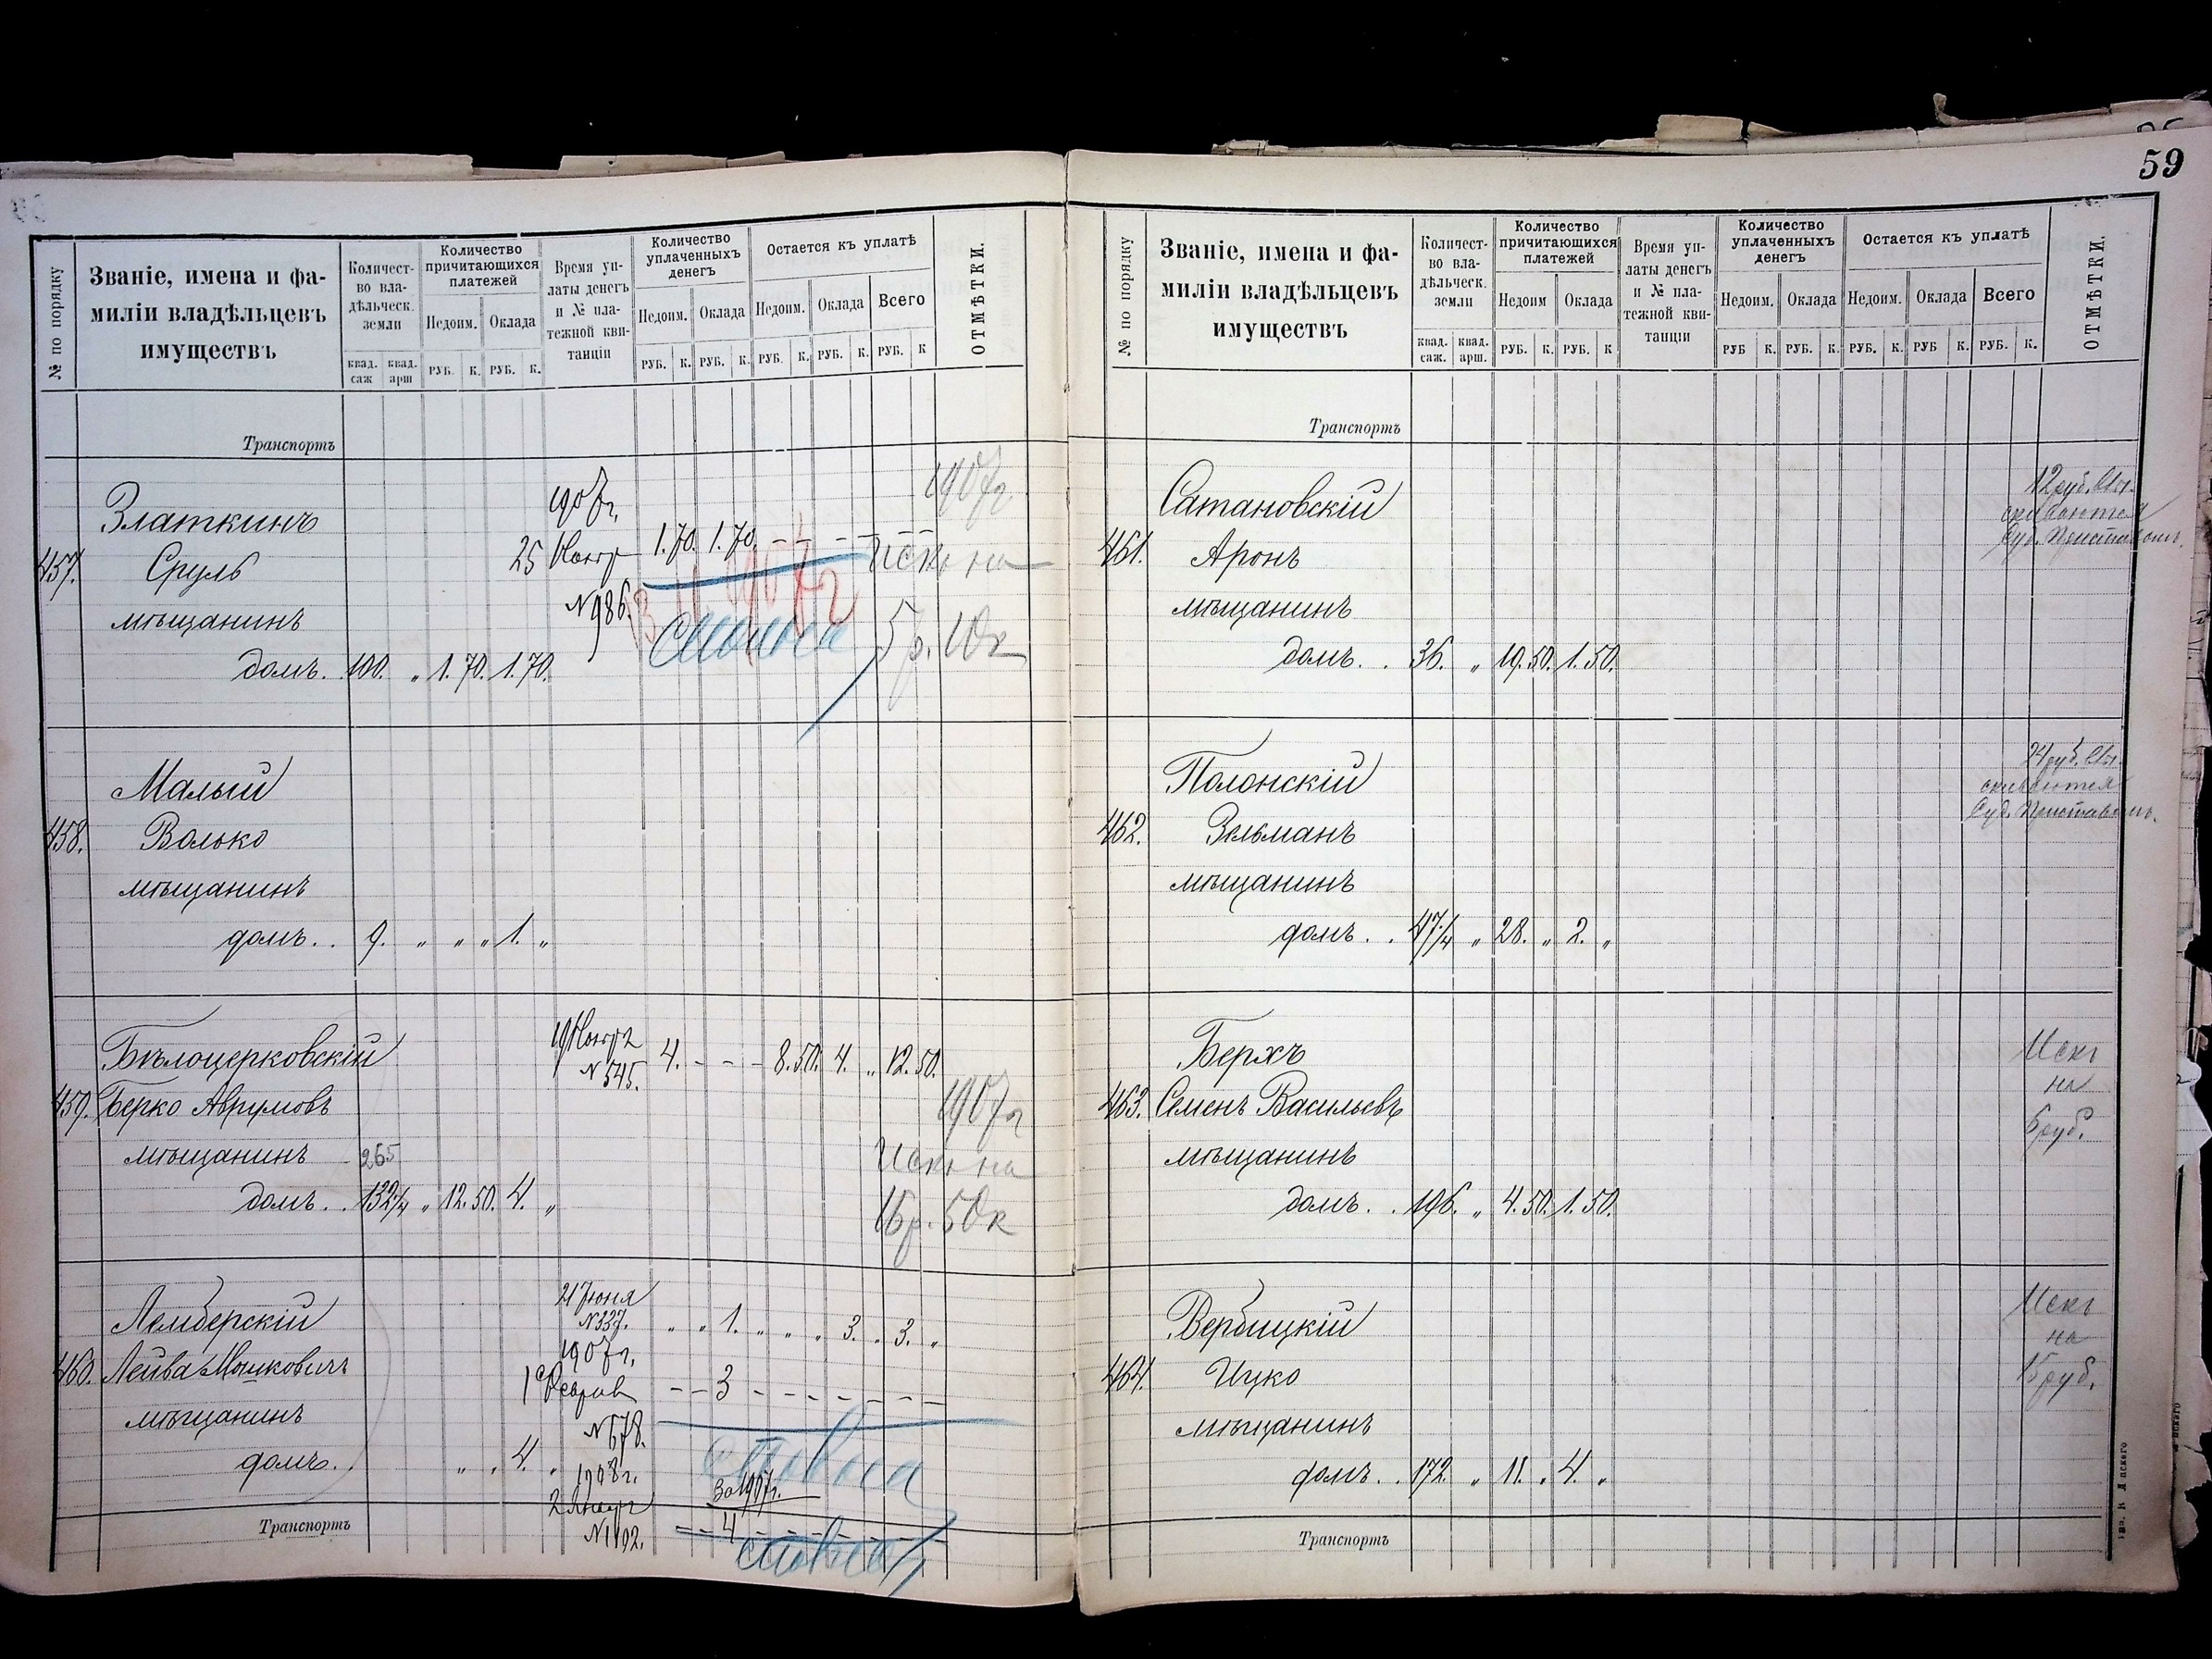 59
№ по порядку
Званіе, имена и фа-
миліи владѣльцевъ
имуществъ
Количест-
во вла-
дѣльческ.
земли
квад. саж квад. арш
Количество
причитающихся
платежей
Недоим. Оклада
РУБ. К. РУБ. К.
Время уп-
латы денегъ
и № пла-
тежной кви-
танціи
Количество
уплаченныхъ
денегъ
Недоим. Оклада
РУБ. К. РУБ. К.
Остается къ уплатѣ
Недоим. Оклада Всего
РУБ. К. РУБ. К. РУБ. К
ОТМѢТКИ.
Транспортъ
Златкинъ
457. Сруль
мѣщанинъ
домъ. 100. „ 1. 70. 1. 70.
1907г.
25
№ 986.
1.70. 1.70.
1907г.
Искъ на
5р. 10к
Малый
458. Волько
мѣщанинъ
домъ. . 9. „ „ „ 1. „
Бѣлоцерковскій
459. Берко Аврумовъ
мѣщанинъ 265
домъ. . 132 1/4 „ 12. 50. 4. „
№ 545.
4. - - - 8.50. 4. „ 12.50.
1907г
Искъ на
16р. 50к
Лемберскій
460. Лейва Мошковичъ
мѣщанинъ
домъ. . „ „ 4. „
21 Іюня
№ 337. „ „ 1. „ „ „ 3. „ 3. „
1907г.
1 Феврал - - 3 - - - - - -
№ 678.
1908г.
За 1907г.
2 Январ
№ 1192. - - 4 - - - - - -
Транспортъ
№ по порядку
Званіе, имена и фа-
миліи владѣльцевъ
имуществъ
Количест-
во вла-
дѣльческ.
земли
квад. саж. квад. арш.
Количество
причитающихся
платежей
Недоим Оклада
РУБ. К. РУБ. К
Время уп-
латы денегъ
и № пла-
тежной кви-
танціи
Количество
уплаченныхъ
денегъ
Недоим. Оклада
РУБ К. РУБ. К.
Остается къ уплатѣ
Недоим. Оклада Всего
РУБ. К. РУБ К. РУБ. К.
ОТМѢТКИ.
Транспортъ
Сатановскій
461. Аронъ
мѣщанинъ
домъ. . 36. „ 19. 50. 1. 50.
12 руб.
Суд. Приставомъ.
Полонскій
462. Зельманъ
мѣщанинъ
домъ. . 47 1/4 „ 28. „ 2. „
24 руб.
Суд. Приставомъ.
Берхъ
463. Семенъ Васильевъ
мѣщанинъ
домъ. . 196. „ 4. 50. 1. 50.
Искъ
на
6 руб.
Вербицкій
464. Ицко
мѣщанинъ
домъ. . 172. „ 11. „ 4. „
Искъ
на
15 руб.
Транспортъ